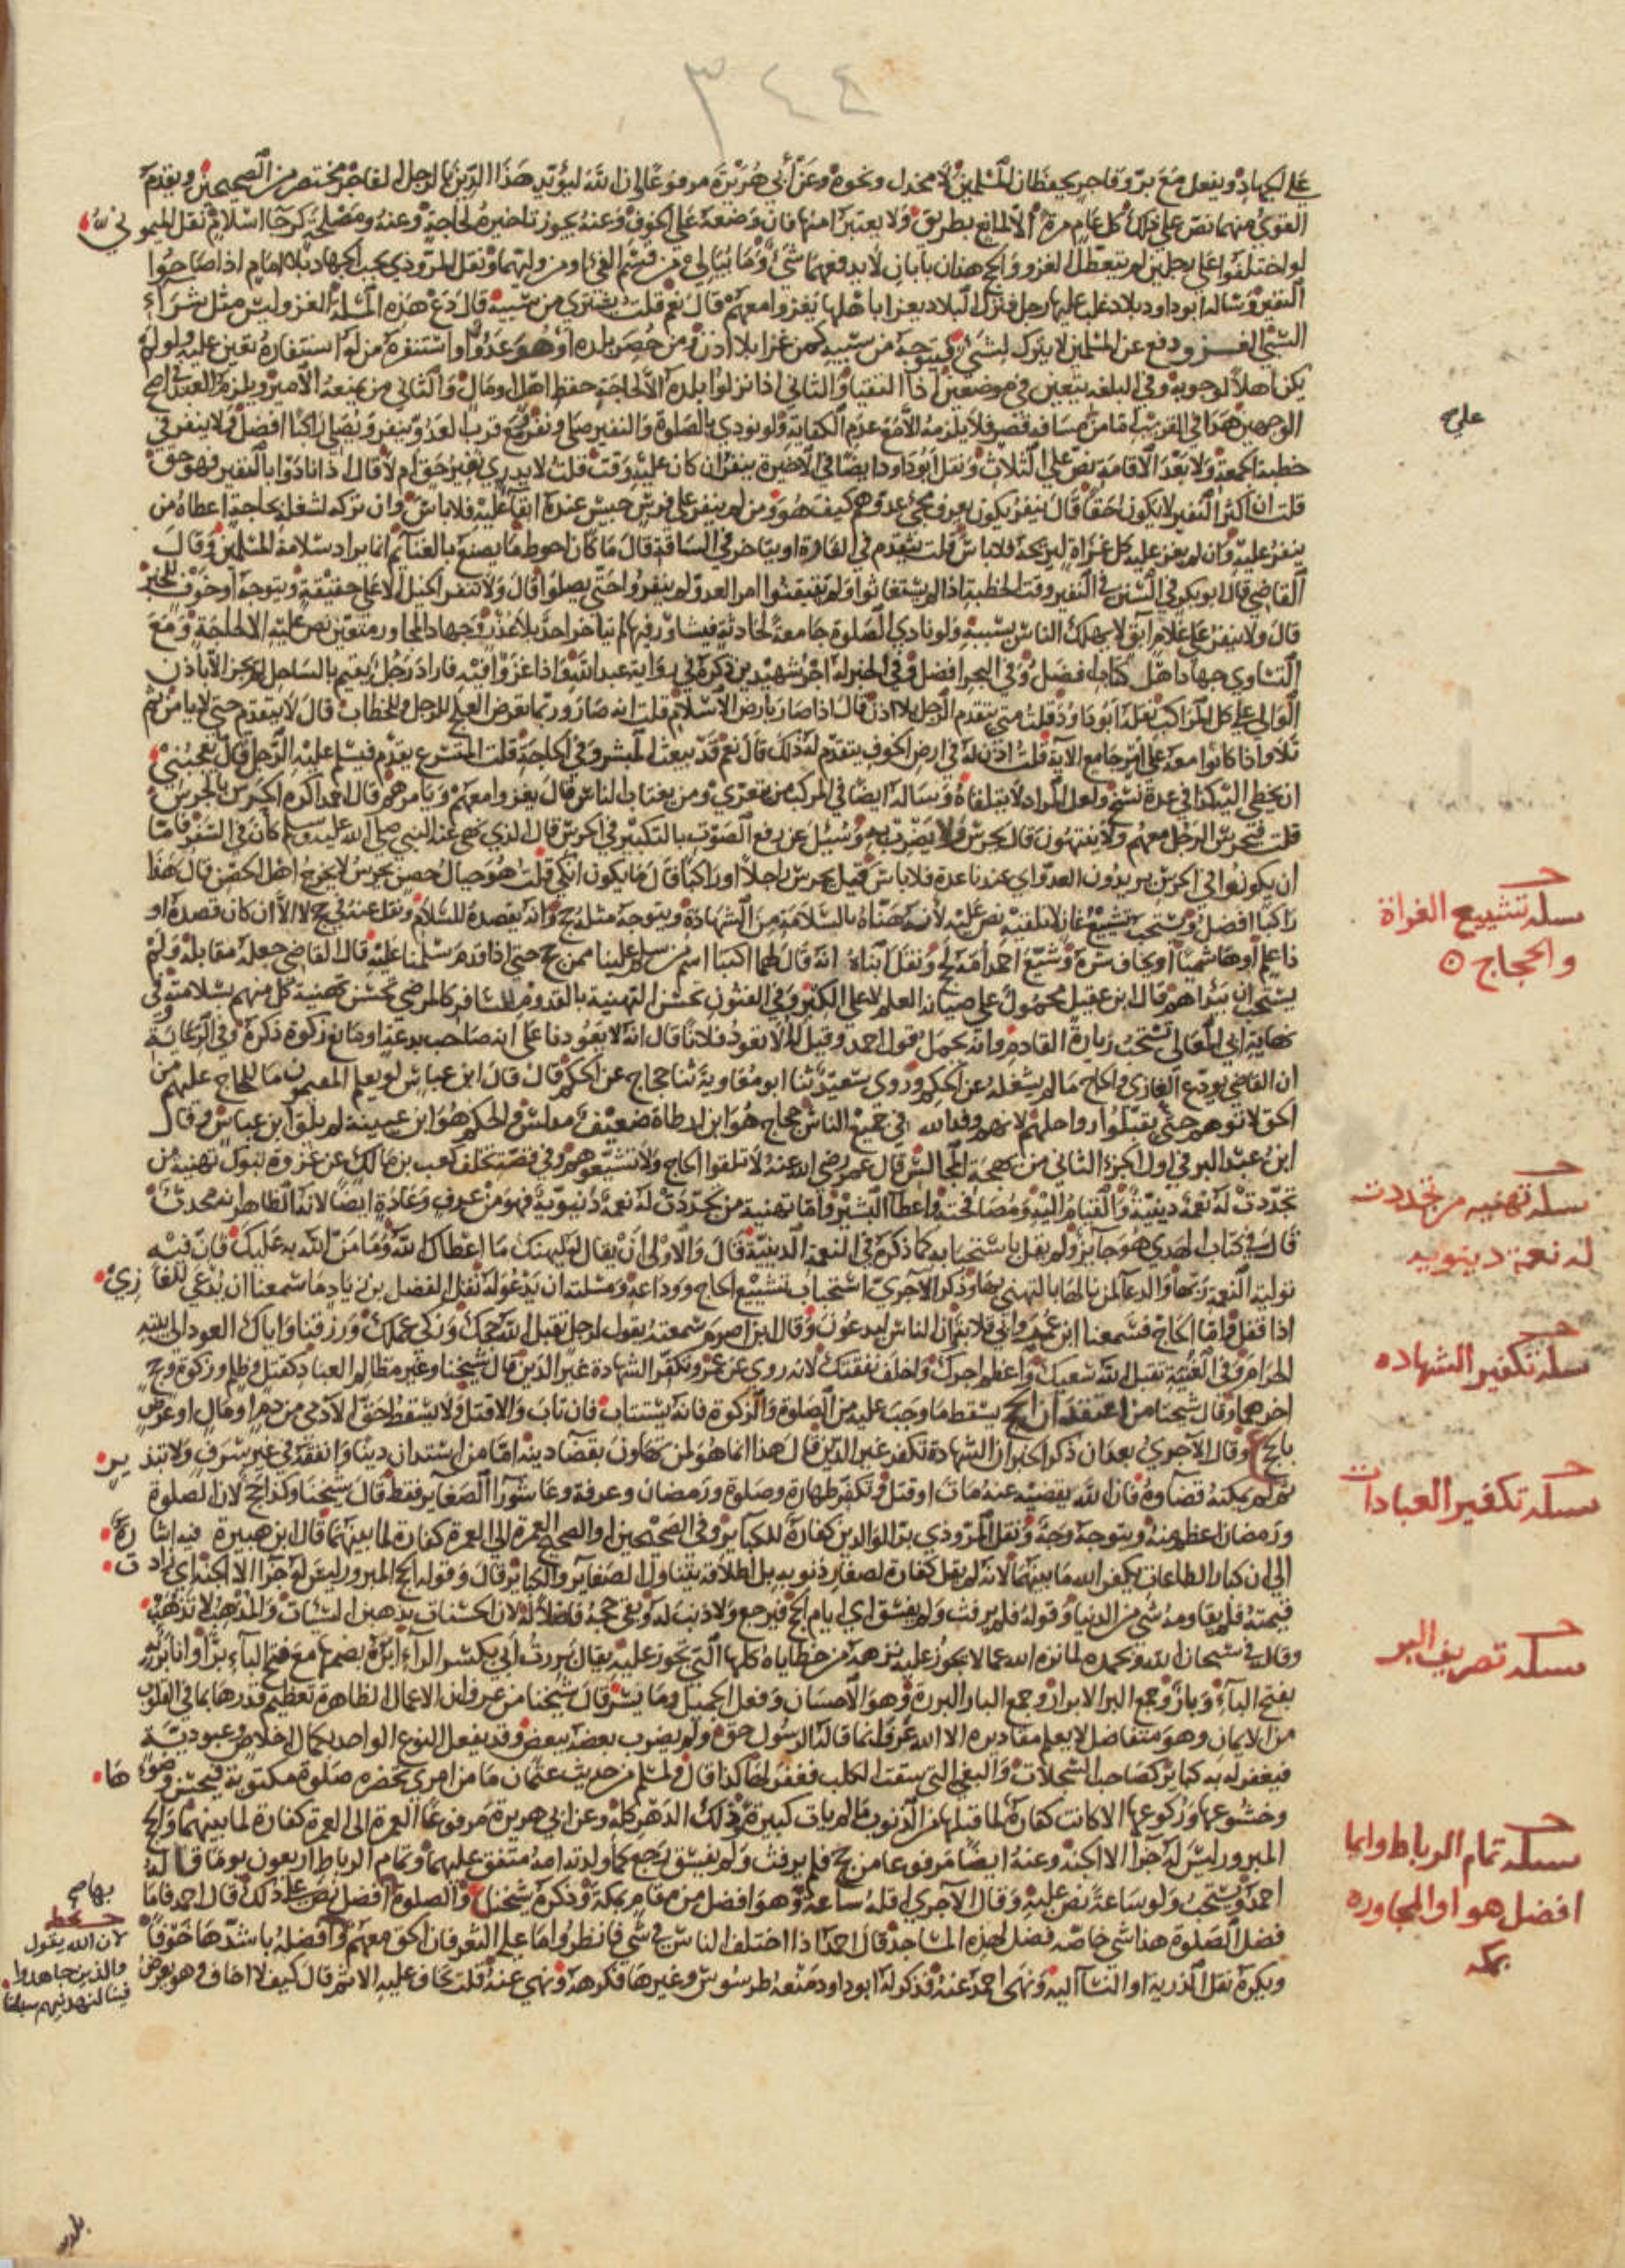 ٣٤٤
على الجهاد ويفعل مع بر وفاجر يحفظان المسلمين لا مخذل ونحوه وعن أبي هريرة مرفوعا إن الله ليؤيد هذا الدين بالرجل الفاجر مختصر من الصحيحين ويقدم
القوي منهما نص على ذلك كل عام مرة إلا لمانع بطريق ولا يعتبر أمنها فإن وضعه على الخوف وعنه يجوز تأخيره لحاجة وعنه ومصلحة كرجا إسلام نقل الميموني
لو اختلفوا على رجلين لم يتعطل الغزو والحج هذان بابان لا يدفعهما شيء وما يبالي من قسم الفيء أو من وليهما ونقل المروذي يجب الجهاد بلا إمام إذا صاحوا
النفير وسأله أبو داود بلاد غلب عليها رجل فنزل البلاد يغزا بأهلها يغزو معهم قال نعم قلت يشتري من سبيه قال دع هذه المسألة الغزو ليس مثل شراء
السبي الغزو دفع عن المسلمين لا يترك لشيء فيتوجه من سبيه كمن غزا بلا إذن ومن حصر بلده أو هو عدو أو استنفره من له استنفاره تعين عليه ولو لم
يكن أهلا لوجوبه وفي البلغة يتعين في موضعين إذا التقيا والثاني إذا نزلوا بلده إلا لحاجة حفظ أهل ومال والثاني من يمنعه الأمير ويلزم العبد في أصح
الوجهين هذا في القريب أما من مسافة قصر فلا يلزمه إلا مع عدم الكفاية ولو نودي بالصلاة والنفير صلى ونفر ومع قرب العدو ينفر ويصلي راكبا أفضل ولا ينفر في
خطبة الجمعة ولا بعد الإقامة نص على الثلاث ونقل أبو داود أيضا في الأخيرة ينفر إن كان عليه وقت قلت لا يدري نفير حق أم لا قال إذا نادوا بالنفير فهو حق
قلت إن أكثر النفير لا يكون حقا قال ينفر يكون يعرف مجيء عدوهم كيف هو ومن لم ينفر على فرس حبيس عنده إبقاء عليه فلا بأس وإن تركه لشغله بحاجة أعطاه من
ينفر عليه وإن لم يغز عليه كل غزاة ليريحه فلا بأس قلت يتقدم في الغارة أو يتأخر في الساقة قال ما كان أحوط ما يصنع بالغنائم إنما يراد سلامة المسلمين وقال
القاضي قال أبو بكر في السنن في النفير وقت الخطبة إذا لم يستغاثوا ولم يتيقنوا أمر العدو لم ينفروا حتى يصلوا قال ولا تنفر الخيل إلا على حقيقة ويتوجه أو خوف للخبر
قال ولا ينفر على غلام آبق لا يهلك الناس بسببه ولو نادي الصلاة جامعة لحادثة فيشاور فيها لم يتأخر أحد بلا عذر وجهاد المجاور متعين نص عليه إلا لحاجة ومع
التساوي جهاد أهل كتاب أفضل وفي البحر أفضل وفي الخبر له أجر شهيدين ذكره في رواية عبد الله وإذا غزوا فيه فأراد رجل يقيم بالساحل لم يجز إلا بإذن
الوالي على كل المراكب نقله أبو داود قلت متى يتقدم الرجل بلا إذن قال إذا صار بأرض الإسلام قلت إنه صار وربما تعرض العلج للرجل والحطاب قال لا يتقدم حتى لا يأمن ثم
تلا وإذا كانوا معه على أمر جامع الآية قلت أذن له في أرض الخوف يتقدم لذلك قال نعم قد يبعث المبشر وفي الحاجة قلت المتسرع يقدم فيسلم عليه الرجل قال يعجبني
أن يخطى إليه كذا في عدة نسخ ولعل المراد لا يتلقاه وسأله أيضا في المركب من يتعرى ومن يغتاب الناس قال يغزو معهم ويأمرهم قال أحمد أكره الحرس بالجرس
قلت فيحرس الرجل معهم ولا ينتهون قال يحرس ولا يضرب به وسئل عن رفع الصوت بالتكبير في الحرس قال الذي نهى عنه النبي صلى الله عليه وسلم كان في السفر فأما
أن يكونوا في الحرس يريدون العدو أي عندنا عدة فلا بأس قيل يحرس راجلا أو راكبا قال ما يكون أنكى قلت هو حيال حصن يحرس لا يخرج أهل الحصن قال هذا
راكبا أفضل ويستحب تشييع غاز لا تلقيه نص عليه لأنه هناه بالسلامة من الشهادة ويتوجه مثله حج وأنه يقصده للسلام ونقل عنه في حج لا إلا إن كان قصده أو
ذا علم أو هاشميا أو يخاف شره وشيع أحمد أمه لحج ونقل ابناه أنه قال لهما اكتبا اسم من سلم علينا ممن حج حتى إذا قدم سلمنا عليه قال القاضي جعله مقابلة ولم
يستحب أن يبدأهم قال ابن عقيل محمول على صيانة العلم لا على الكبر وفي الفنون تحسن التهنية بالقدوم للمسافر كالمرضى تحسن تهنية كل منهم بسلامته وفي
نهاية أبي المعالي تستحب زيارة القادم وأنه يحمل قول أحمد وقيل له ألا نعود فلانا قال إنه لا يعودنا على أنه صاحب بدعة أو مانع زكوة ذكره وفي الرعاية
أن القاضي يودع الغازي والحاج ما لم يشغله عن الحكم وروى سعيد ثنا أبو معاوية ثنا حجاج عن الحكم قال قال ابن عباس لو يعلم المقيمون ما للحاج عليهم من
الحق لأتوهم حتى يقبلوا رواحلهم لأنهم وفد الله في جميع الناس حجاج هو ابن أرطاة ضعيف مدلس والحكم هو ابن عيينة لم يلق ابن عباس وقال
ابن عبد البر في أول الجزء الثاني من بهجة المجالس قال عمر رضي الله عنه لا تلقوا الحاج ولا تشيعوهم وفي قصة تخلف كعب بن مالك عن غزوة تبوك تهنية من
تجددت له نعمة دينية والقيام إليه ومصافحته وإعطاء البشير وأما تهنية من تجددت له نعمة دنيوية فهو من عرف وعادة أيضا لأنه الظاهر أنه محدث
قال في كتاب الهدي هو جائز ولم يقل باستحبابه كما ذكره في النعمة الدينية قال والأولى أن يقال له ليهنك ما أعطاك الله وما من الله به عليك فإن فيه
تولية النعمة ربها والدعاء لمن نالها بالتهني بها وذكر الآجري استحباب تشييع الحاج ووداعه ومسئلته أن يدعو له نقل الفضل بن زياد ما سمعنا أن يدعى للغازي
إذا قفل وأما الحاج فسمعنا ابن عمر وأبي قلابة وأن الناس ليدعون وقال ابن أصرم سمعته يقول لرجل تقبل الله حجك وزكى عملك ورزقنا وإياك العود إلى بيته
الحرام وفي الغنية تقبل الله سعيك وأعظم أجرك وأخلف نفقتك لأنه روي عن عمر وتكفر الشهادة غير الدين قال شيخنا وغير مظالم العباد كقتل وظلم وزكوة وحج
أخرهما وقال شيخنا من اعتقد أن الحج يسقط ما وجب عليه من الصلوة والزكوة فإنه يستتاب فإن تاب وإلا قتل ولا يسقط حق الآدمي من دم أو مال أو عرض
بالحج وقال الآجري بعد أن ذكر الخبر أن الشهادة تكفر غير الدين قال هذا إنما هو لمن تهاون بقضاء دينه أما من استدان دينا وأنفقه في غير سرف ولا تبذير
ثم لم يمكنه قضاؤه فإن الله يقضيه عنه مات أو قتل وتكفر طهارة وصلوة ورمضان وعرفة وعاشوراء الصغائر فقط قال شيخنا وكذا حج لأن الصلوة
ورمضان أعظم منه ويتوجه وجه ونقل المروذي بر الوالدين كفارة للكبائر وفي الصحيحين أو الصحيح العمرة إلى العمرة كفارة لما بينهما قال ابن هبيرة فيه إشارة
إلى أن كبار الطاعات يكفر الله ما بينهما لأنه لم يقل كفارة لصغار ذنوبه بل إطلاقه يتناول الصغائر والكبائر قال وقوله الحج المبرور ليس له جزاء إلا الجنة أي زادت
قيمته فلم يقاومه شيء من الدنيا وقوله فلم يرفث ولم يفسق أي أيام الحج فيرجع ولا ذنب له وبقي حجه فاضلا له لأن الحسنات يذهبن السيئات والمذهب لا تذهب
وقال في سبحان الله وبحمده لما نزه الله عما لا يجوز عليه نزهه من خطاياه كلها التي تجوز عليه يقال بررت أبي بكسر الراء أبره بضمها مع فتح الباء برا وأنا بر به
بفتح الباء وبار وجمع البر الأبرار وجمع البار البررة وهو الإحسان وفعل الجميل وما يسر قال شيخنا من عبر وأن الأعمال الظاهرة تعظيم قدرها بما في القلوب
من الإيمان وهو متفاضل لا يعلم مقاديره إلا الله عرف أنما قاله الرسول حق ولم يضرب بعضه ببعض وقد يفعل النوع الواحد بكمال إخلاص وعبودية
فيغفر له به كبائر كصاحب السجلات والبغي التي سقت الكلب فغفر لها كذا قال ولمسلم من حديث عثمان ما من امرئ تحضره صلوة مكتوبة فيحسن وضوءها
وخشوعها وركوعها إلا كانت كفارة لما قبلها من الذنوب ما لم يأت كبيرة وذلك الدهر كله وعن أبي هريرة مرفوعا العمرة إلى العمرة كفارة لما بينهما والحج
المبرور ليس له جزاء إلا الجنة وعنه أيضا مرفوعا من حج فلم يرفث ولم يفسق رجع كما ولدته أمه متفق عليهما وتمام الرباط أربعون يوما قاله
أحمد ويستحب ولو ساعة نص عليه وقال الآجري أقله ساعة وهو أفضل من مقام بمكة وذكره شيخنا ع والصلوة أفضل نص على ذلك قال أحمد فأما
فضل الصلوة هذا شيء خاصة فضل لهذه المساجد قال أحمد إذا اختلف الناس في شيء فانظروا ما عليه الثغر فإن الحق معهم وأفضله بأشدها خوفا
ويكره نقل الذرية أو النساء إليه ونهى أحمد عنه فذكر له أبو داود منعه طرسوس وغيرها فكرهه ونهى عنه قلت تخاف عليه الإثم قال كيف لا أخاف وهو يعرض
مسألة تشييع الغزاة
والحجاج
مسألة تهنيه من تجددت
له نعمة دينوية
مسألة تكفير الشهاده
مسألة تكفير العبادات
مسألة تصريف البر
مسألة تمام الرباط وايما
افضل هو او المجاوره
بمكه
بها صح
لان الله يقول
والذين جاهدوا
فينا لنهدينهم سبلنا